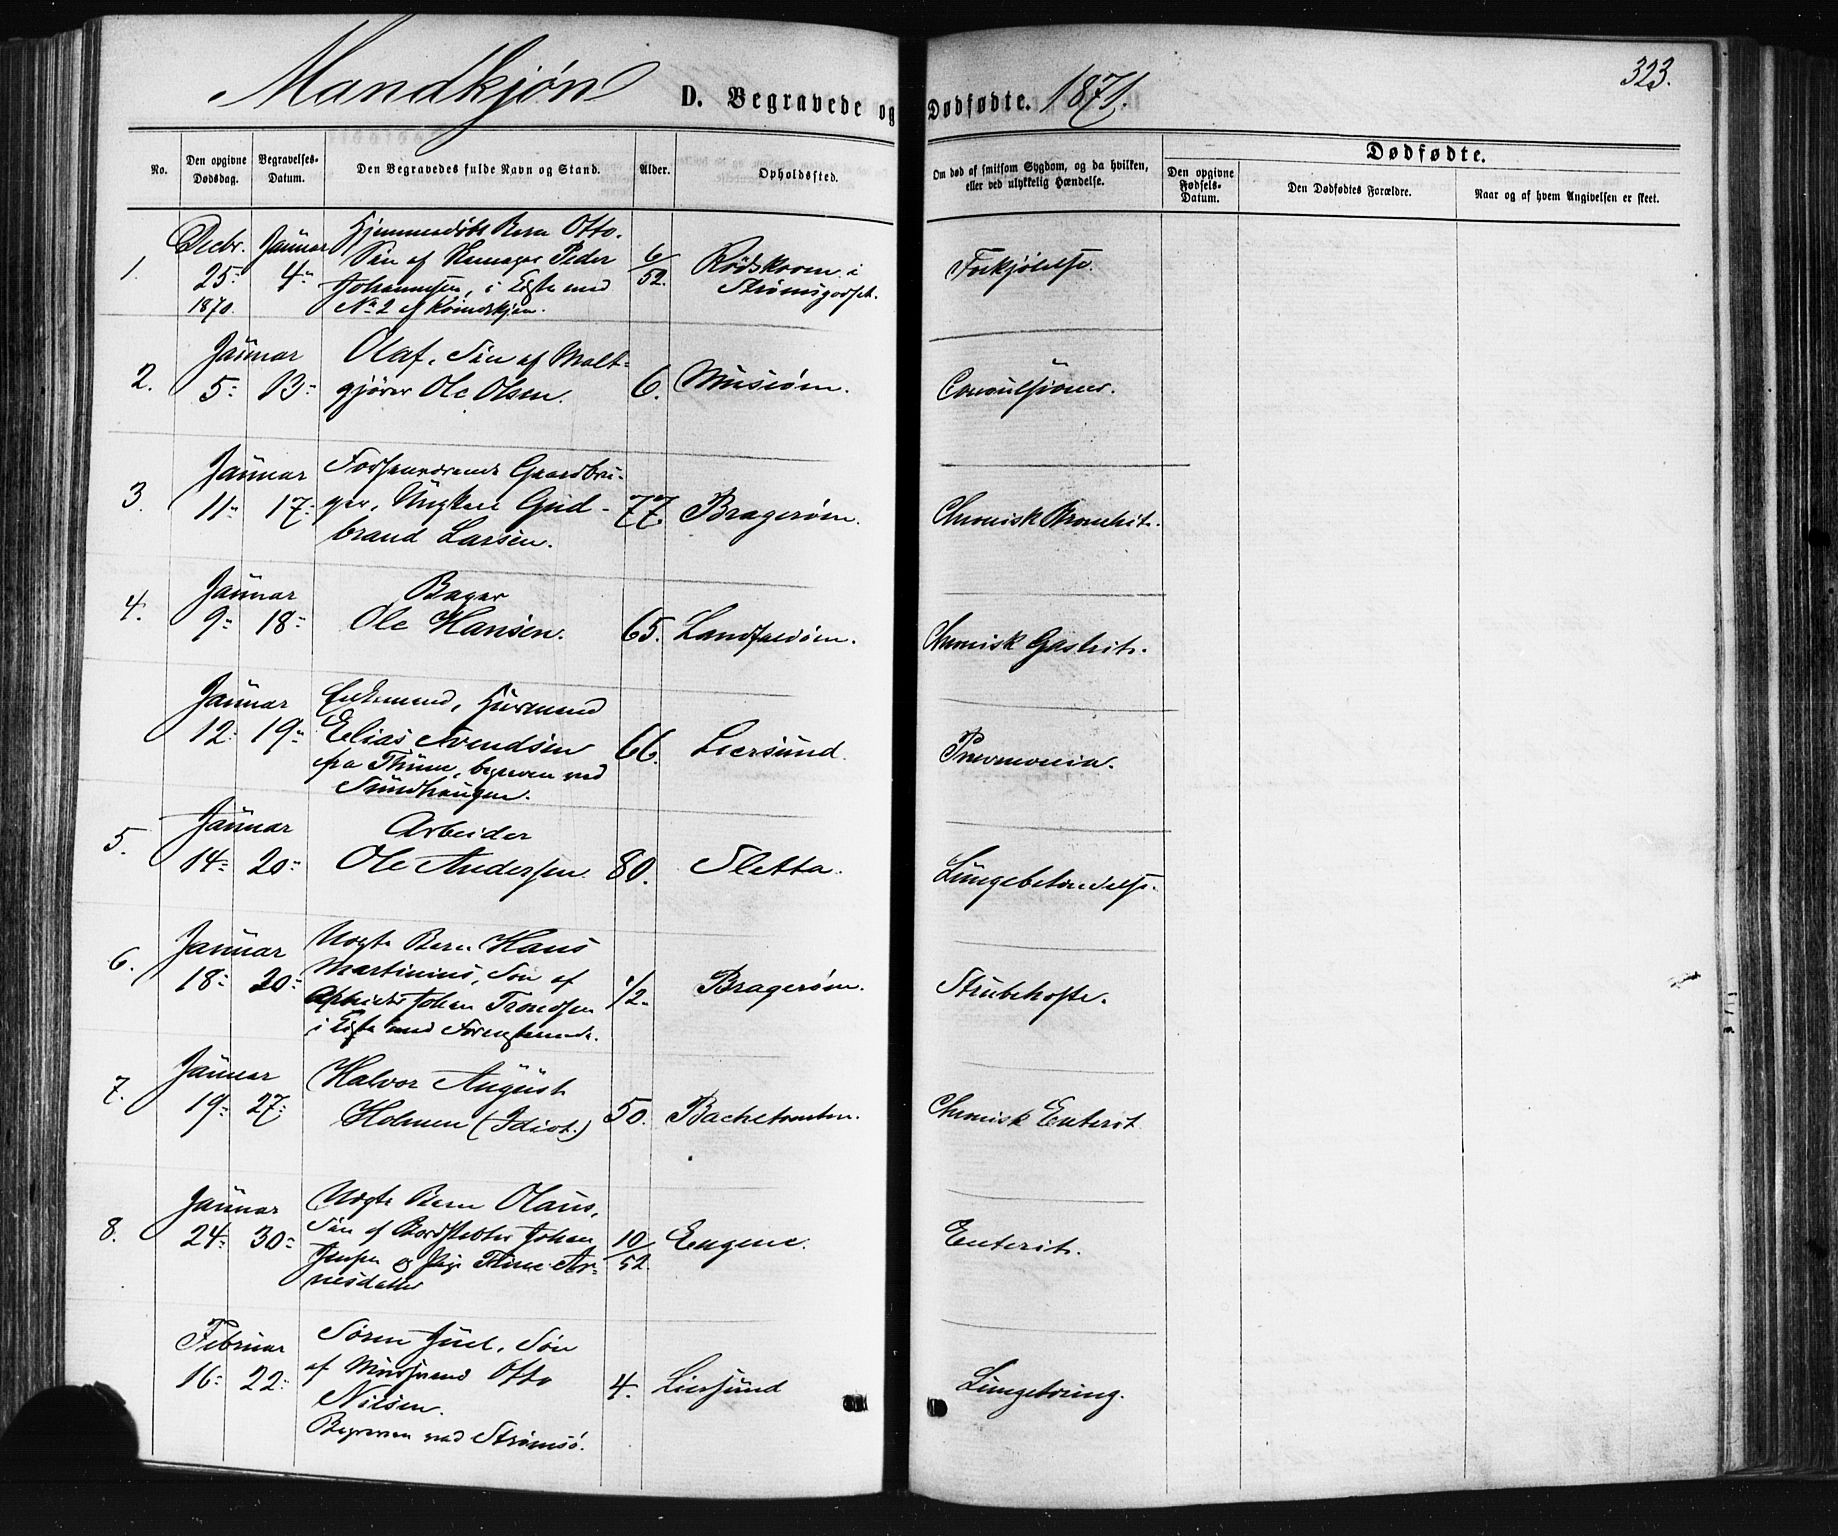 Mandkjøn D. Begravede og Dødfødte. 1871. 323.
Dødfødte.
No. Den opgivne Dødsdag. Begravelses-Datum. Den Begravedes fulde Navn og Stand. Alder. Opholdssted. Om død af smitsom Sygdom, og da hvilken, eller ved ulykkelig Hændelse. Den opgivne Fødsels-Datum. Den Dødfødtes Forældre. Naar og af hvem Angivelsen er skeet.
Decbr. Januar Hjemmedøbt Barn Otto.
1. 25- 4- Søn af Peder 6/52. i Forkjølelse.
1870. Johannesen, i Egte med Strømsgodset.
No 2 af
Januar Olaf, Søn af Malt-
2. 5- 13- gjører Ole Olsen. 6. Convulsioner.
Januar Forhenværende Gaardbru-
3. 11- 17- ger, Ungkarl Gud- 77. Bragerøen. Chronisk Bronchit.
brand Larsen.
Januar Bager
4. 9- 18- Ole Hansen. 65. Landfaldøen. Chronisk Gastrit.
Januar Enkemand, Huusmand
12- 19- Elias Svendsen 66. Liersund. Pneumonia.
fra begraven ved
Sundhaugen.
Januar Arbeider
5. 14- 20- Ole Andersen 80. Sletta. Lungebetændelse.
Januar Uægte Barn Hans
6. 18- 20- Martinius, Søn af 1/2. Bragerøen. Strubehoste.
Arbeider Johan Trondsen
i Egte med Forenstaaende.
Januar Halvor August
7. 19- 27- Holmen (Idiot.) 50. Chronisk Enterit
Januar Uægte Barn Olaus,
8. 24- 30- Søn af Johan 10/52. Engene. Enterit.
Jensen og Pige Ar-
nesdatter
Februar Søren Juel, Søn
16- 22- af Otto 4. Liersund
Nilsen.
Begraven ved Strømsø.